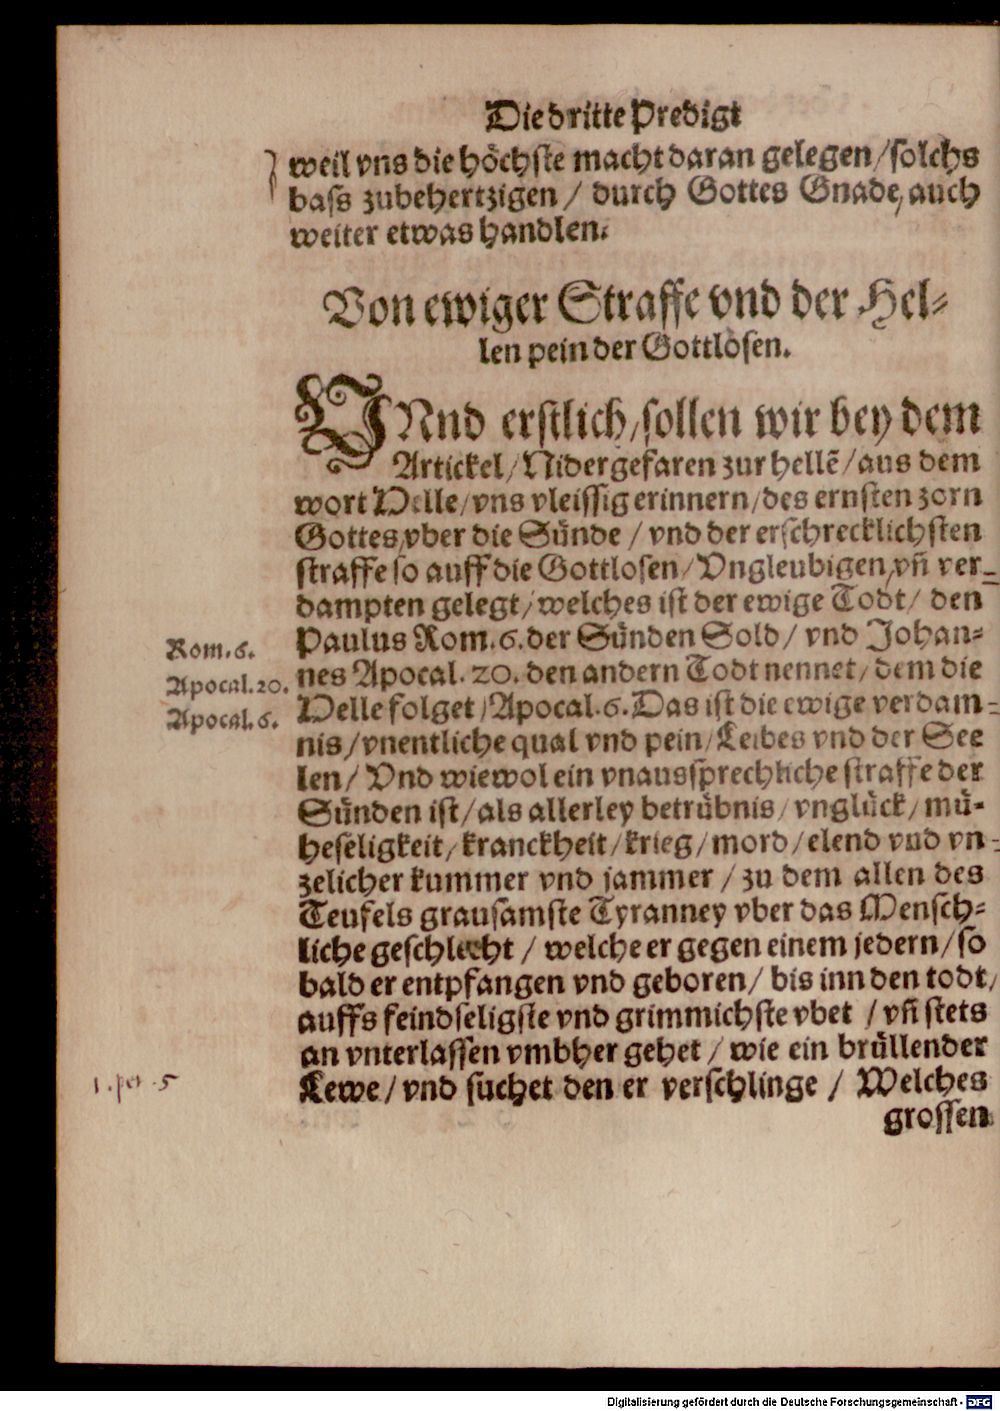 Die dritte Predigt
weil vns die höchste macht daran gelegen/solchs
bass zubehertzigen / durch Gottes Gnade, auch
weiter etwas handlen.
Von ewiger Straffe vnd der Hel-
len pein der Gottlosen.
VNnd erstlich/sollen wir bey dem
Artickel/Nidergefaren zur hellẽ/aus dem
wort Helle/vns vleissig erinnern/des ernsten zorn
Gottes/vber die Sünde / vnd der erschrecklichsten
straffe so auff die Gottlosen/Vngleubigen/vñ ver-
dampten gelegt/welches ist der ewige Todt/ den
Rom.6.
Paulus Rom.6.der Sünden Sold/ vnd Johan-
Apocal.20.
nes Apocal.20. den andern Todt nennet/dem die
Apocal.6.
Helle folget/Apocal.6.Das ist die ewige verdam-
nis/vnentliche qual vnd pein/Leibes vnd der See
len/ Vnd wiewol ein vnaussprechliche straffe der
Sünden ist/als allerley betrübnis/vnglück/mü-
heseligkeit/kranckheit/krieg/mord/elend vnd vn-
zelicher kummer vnd jammer / zu dem allen des
Teufels grausamste Tyranney vber das Mensch-
liche geschlecht / welche er gegen einem jedern/so
bald er entpfangen vnd geboren/ bis inn den todt/
auffs feindseligste vnd grimmichste vbet / vñ stets
an vnterlassen vmbher gehet / wie ein brüllender
1. pet. 5
Lewe/vnd suchet den er verschlinge / Welches
grossen
Digitalisierung gefördert durch die Deutsche Forschungsgemeinschaft - DFG